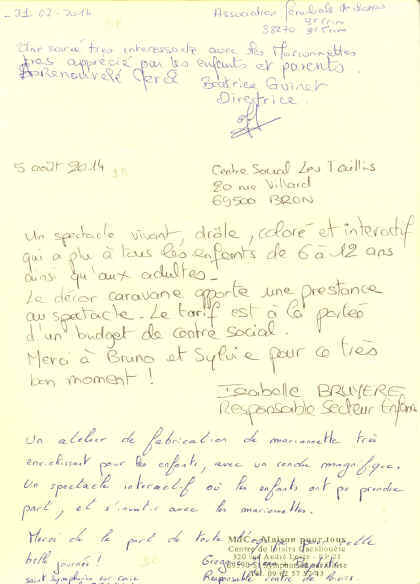 31-07-2014
Association Familiale de
38270
Une soirée très interessante avec les Marionnettes
très apprécié par les enfants et parents.
A Renouvelé
Beatrice Guinet
Directrice.
5 août 2014
Centre Social Les Taillis
20 rue Villard
69500 BRON
Un spectacle vivant, drôle, coloré et interactif
qui a plu à tous les enfants de 6 à 12 ans
ainsi qu'aux adultes.
Le décor caravane apporte une prestance
au spectacle. Le tarif est à la portée
d'un budget de centre social.
Merci à Bruno et Sylvie pour ce très
bon moment !
Isabelle BRUYERE
Responsable Secteur Enfance
Un atelier de fabrication de marionnette très
enrichissant pour les enfants, avec un rendu magnifique.
Un spectacle interactif où les enfants ont pu prendre
part, et s'investir avec les marionnettes.
Merci de la part de toute
belle journée !
MJC - Maison pour tous
Centre de loisirs
Saint Symphorien sur Coise
Responsable centre de loisirs